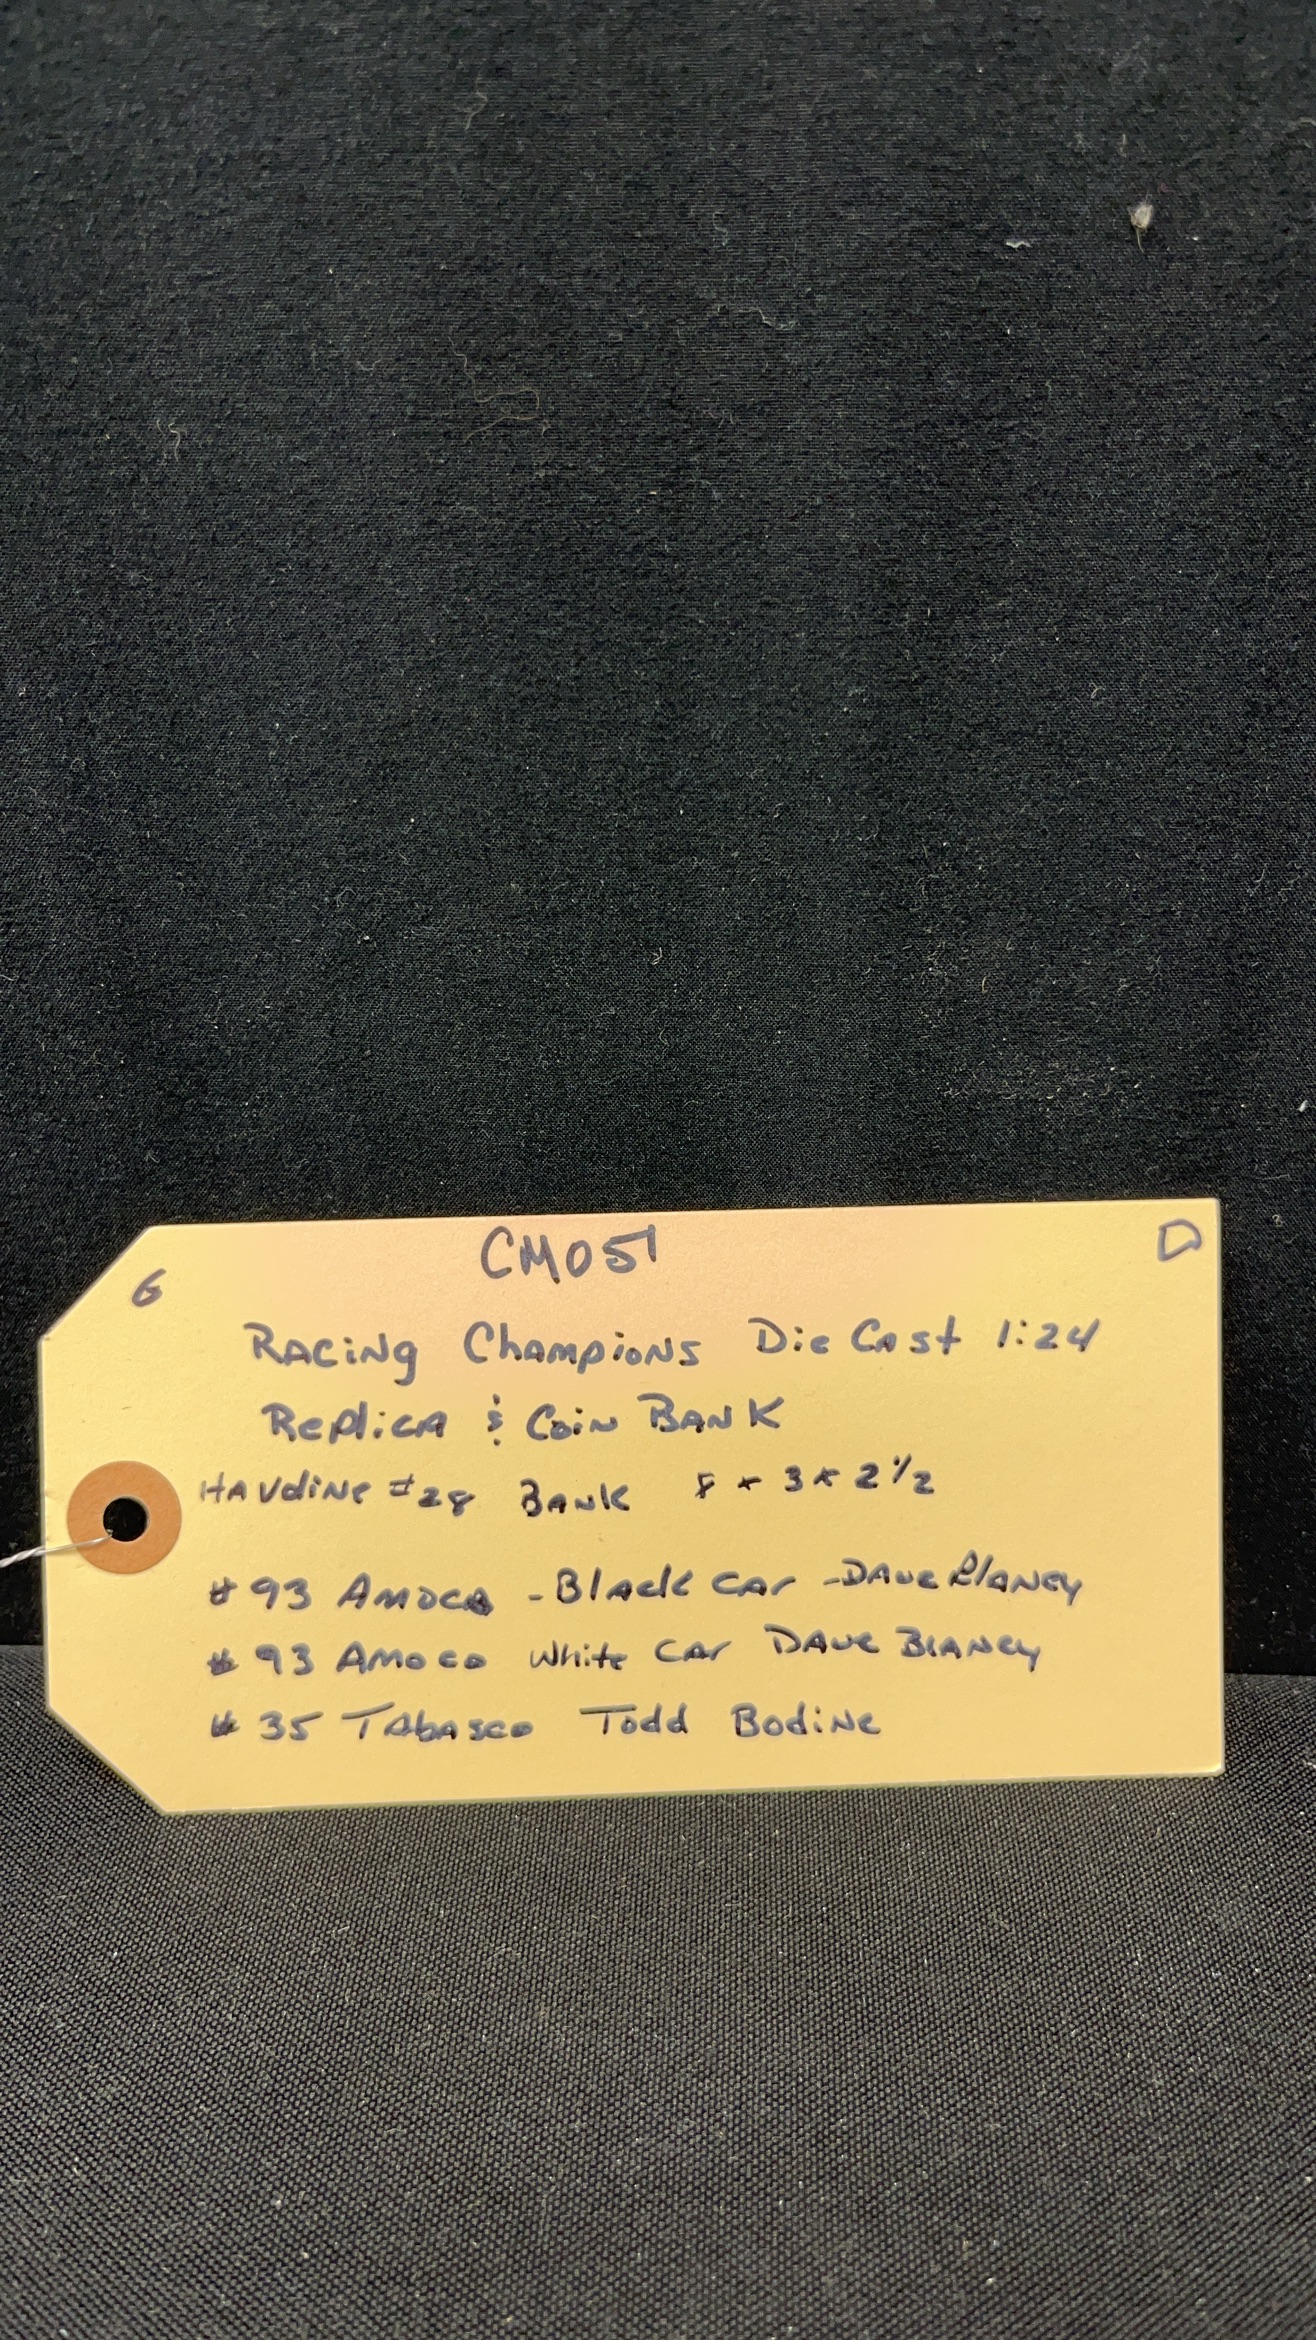 CM051
D
G
Racing Champions Die Cast 1:24
Replica & Coin Bank
Havoline #28 Bank 8 x 3 x 2 1/2
#93 Amoco - Black Car - Dave Blaney
#93 Amoco White Car Dave Blaney
#35 Tabasco Todd Bodine